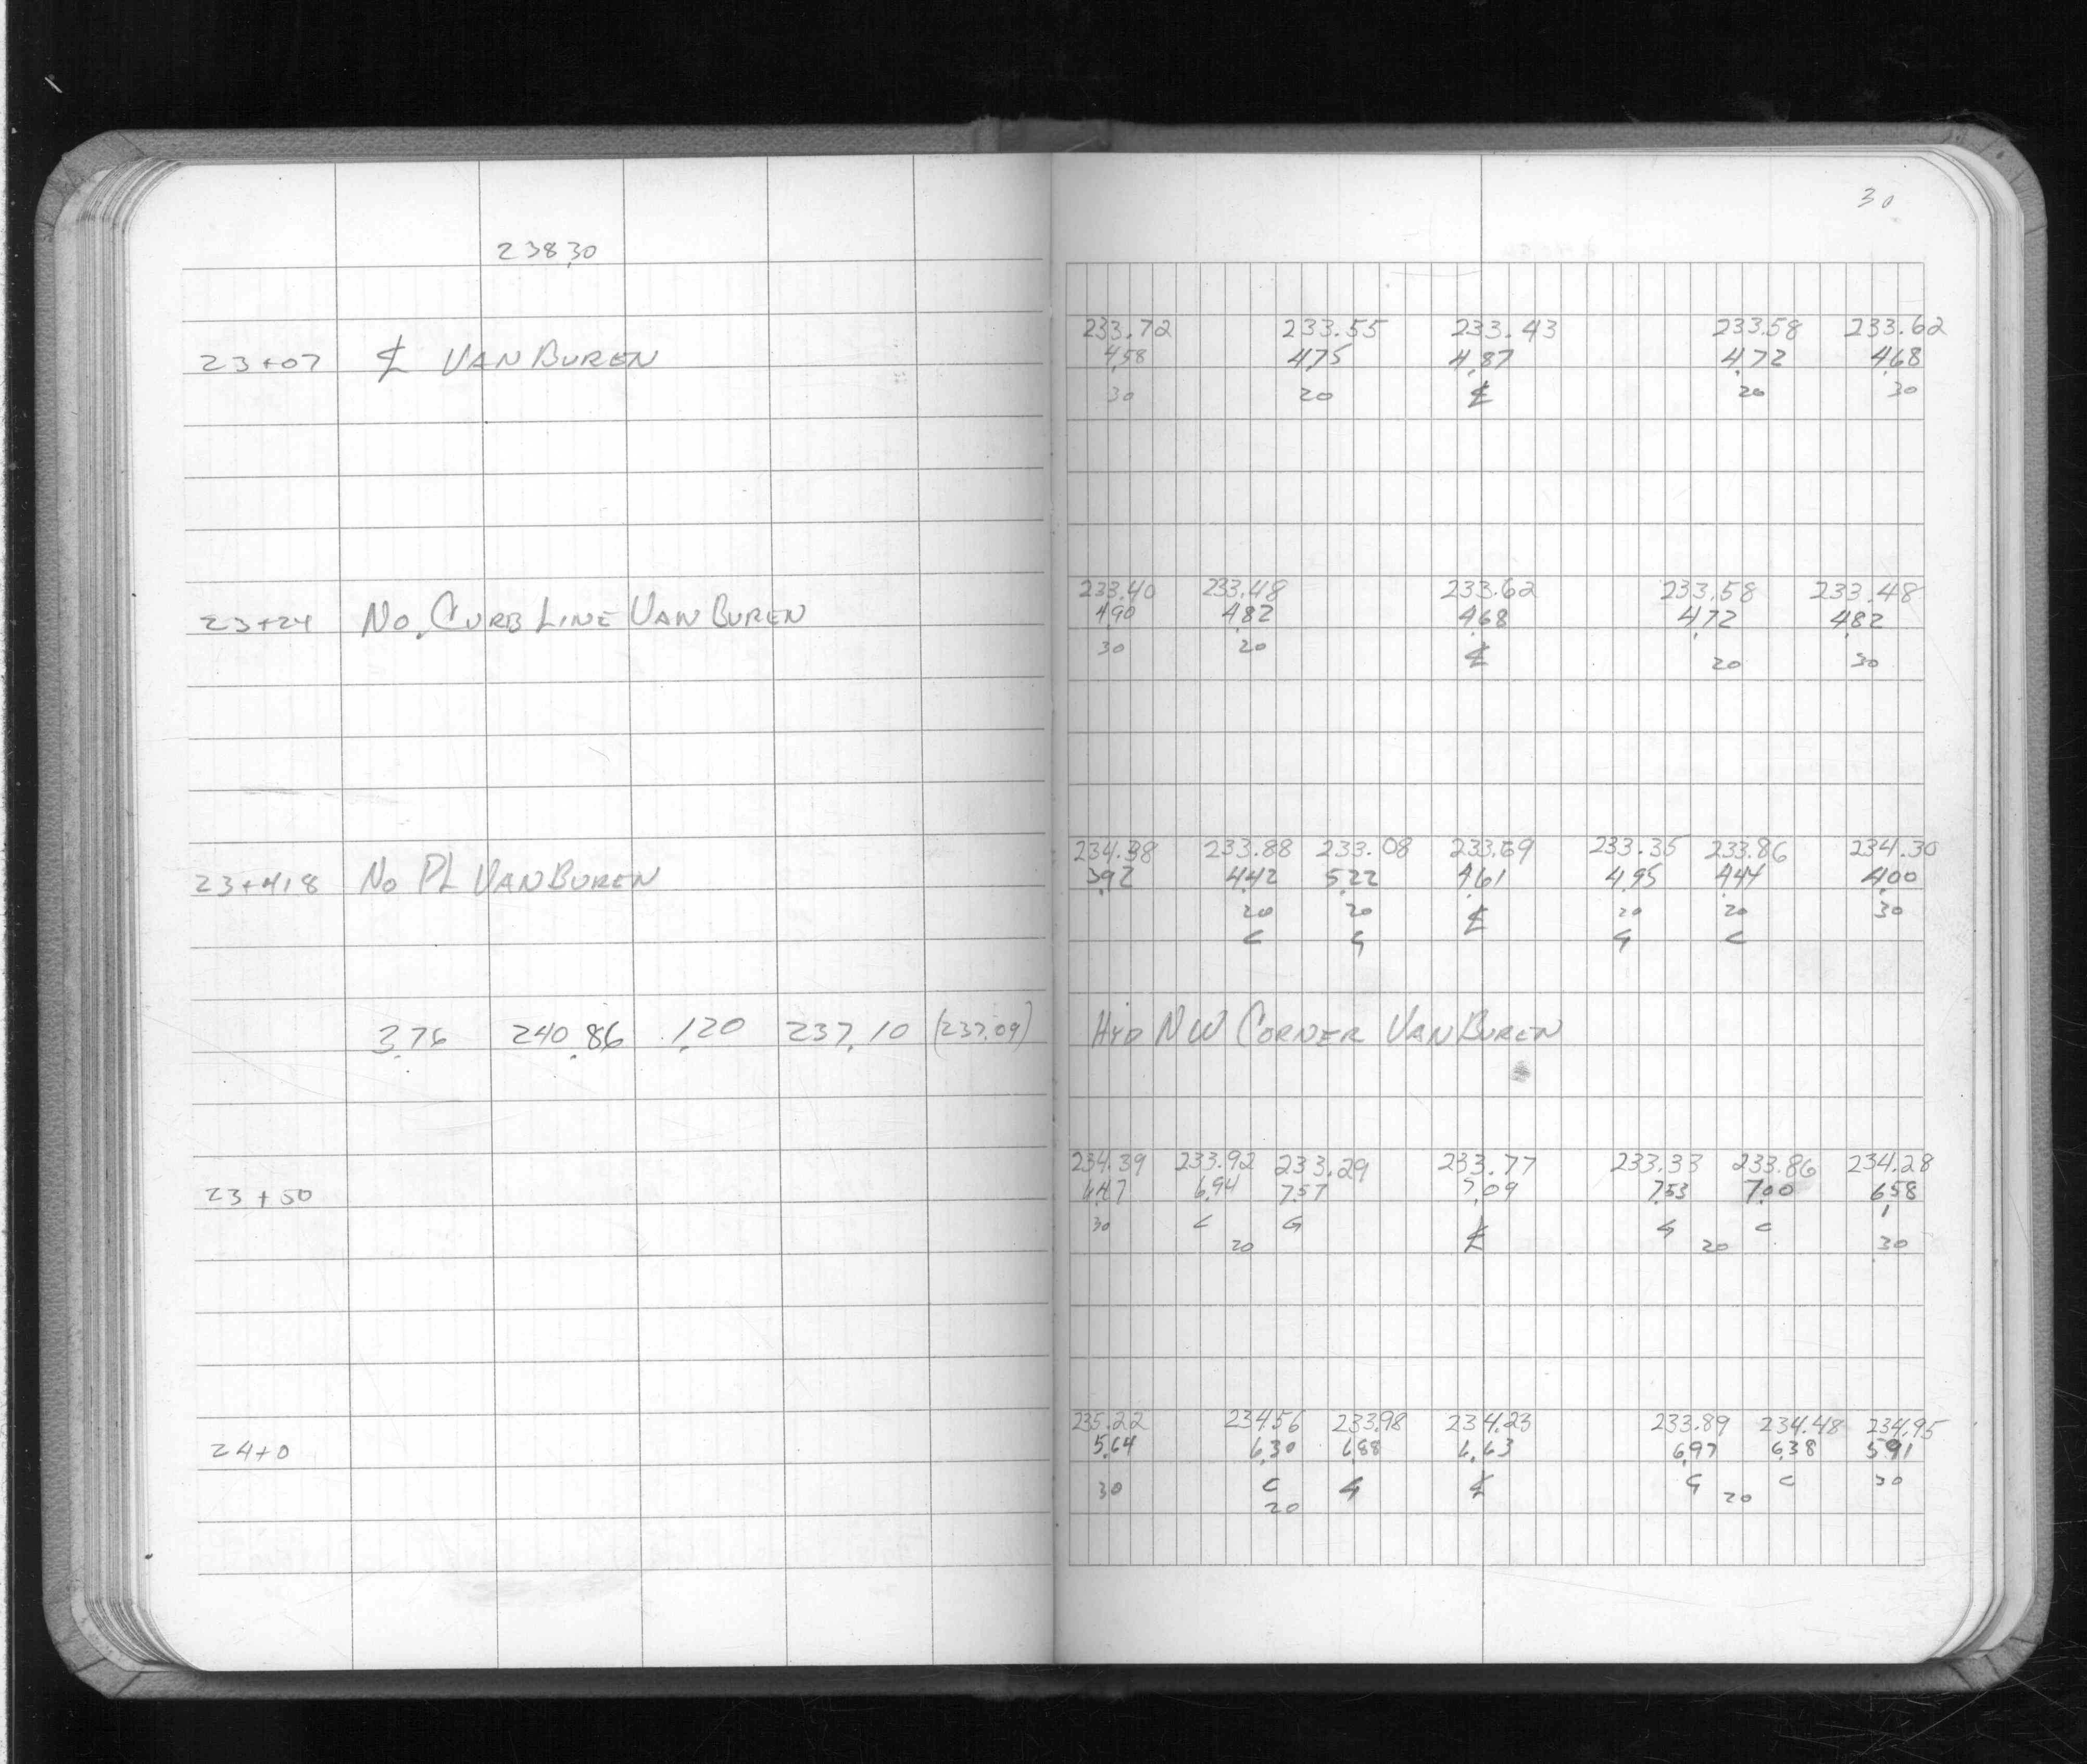 30
238.30
233.72 233.55 233.43 233.58 233.62
23+07 ℄ VAN BUREN 4.58 4.75 4.87 4.72 4.68
30 20 ℄ 20 30
233.40 233.48 233.62 233.58 233.48
23+24 NO. CURB LINE VAN BUREN 4.90 4.82 4.68 4.72 4.82
30 20 ℄ 20 30
234.38 233.88 233.08 233.69 233.35 233.86 234.30
23+41.8 NO PL VAN BUREN 3.92 4.42 5.22 4.61 4.95 4.44 4.00
20 20 ℄ 20 20 30
C G G C
3.76 240.86 1.20 237.10 (237.09) HYD NW CORNER VAN BUREN
234.39 233.92 233.29 233.77 233.33 233.86 234.28
23+50 6.47 6.94 7.57 7.09 7.53 7.00 6.58
30 C G ℄ G C
20 20 30
235.22 234.56 233.98 234.23 233.89 234.48 234.95
24+0 5.64 6.30 6.88 6.63 6.97 6.38 5.91
30 C G ℄ G C 30
20 20